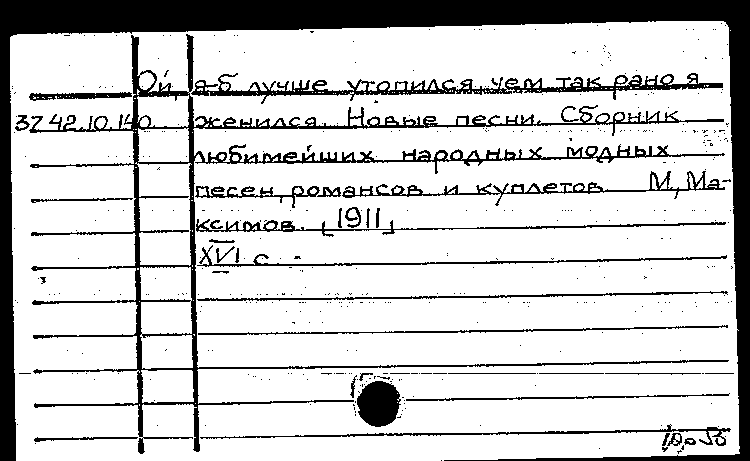 Ой, я-б лучше утопился, чем так рано я
37.42.10.140. женился. Новые песни. Сборник
любимейших народных модных
песен, романсов и куплетов М., Ма-
ксимов. [1911]
XVI с.